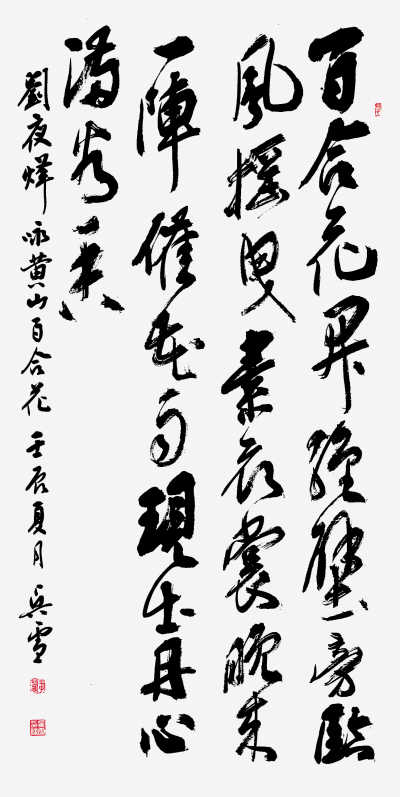 百合花開絕壁旁臨
風搖曳素衣裳晚來
一陣催花雨現出丹心
滿谷香
劉夜烽 咏黃山百合花 壬辰夏月 吳雪